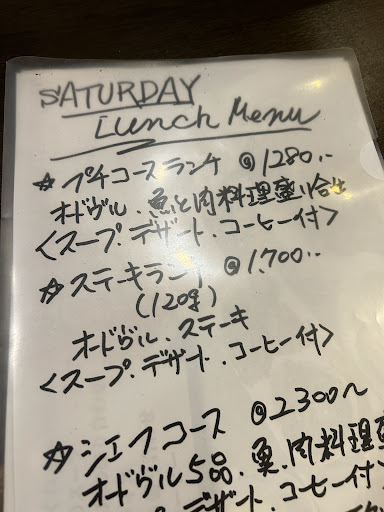 SATURDAY
Lunch Menu
☆ プチコースランチ @1280.-
オドヴル.魚と肉料理盛り合せ
<スープ.デザート.コーヒー付>
☆ ステーキランチ @1,700.-
(120g)
オードヴル.ステーキ
<スープ.デザート.コーヒー付>
☆ シェフコース @2300〜
オードヴル5品.魚.肉料理盛
デザート.コーヒー付